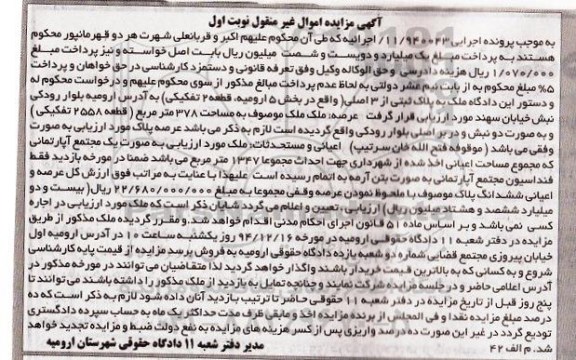 آگهی مزایده اموال غیر منقول نوبت اول
به موجب پرونده اجرایی ۱۱/۹۴۰۰۲۳ اجرائیه که طی آن محکوم علیهم اکبر و قربانعلی شهرت هر دو قهرمانپور محکوم
هستند به پرداخت مبلغ یک میلیارد و دویست و شصت میلیون ریال بابت اصل خواسته و نیز پرداخت مبلغ
۱/۰۷۰/۰۰۰ ریال هزینه دادرسی و حق الوکاله وکیل وفق تعرفه قانونی و دستمزد کارشناسی در حق خواهان و پرداخت
۵٪ مبلغ محکوم به از بابت نیم عشر دولتی به لحاظ عدم پرداخت مبالغ مذکور از سوی محکوم علیهم و درخواست محکوم له
و دستور این دادگاه ملک به پلاک ثبتی از ۳ اصلی (واقع در بخش ۵ ارومیه، قطعه ۲ تفکیکی) به آدرس ارومیه بلوار رودکی
نبش خیابان سهند مورد ارزیابی قرار گرفت عرصه: ملک ملک موصوف به مساحت ۳۷۸ متر مربع ( قطعه ۲۵۵۸ تفکیکی )
و به صورت دو نبش و در بر اصلی بلوار رودکی واقع گردیده است لازم به ذکر می باشد عرصه پلاک مورد ارزیابی به صورت
وقفی می باشد ( موقوفه فتح الله خان سرتیپ) اعیانی و مستحدثات: ملک مورد ارزیابی به صورت یک مجتمع آپارتمانی
که مجموع مساحت اعیانی اخذ شده از شهرداری جهت احداث مجموعا ۱۳۴۷ متر مربع می باشد ضمنا در مورخه بازدید فقط
فنداسیون مجتمع آپارتمانی به صورت بتن آرمه به اتمام رسیده است علیهذا با عنایت به مراتب فوق ارزش کل عرصه و
اعیانی ششدانگ پلاک موصوف با ملحوظ نمودن عرصه وقفی مجموعا به مبلغ ۲۲/۶۸۰/۰۰۰/۰۰۰ ریال( بیست و دو
میلیارد ششصد و هشتاد میلیون ریال) ارزیابی، تعیین و اعلام می گردد شایان ذکر است که ملک مورد ارزیابی در اجاره
کسی نمی باشد و بر اساس ماده ۵۱ قانون اجرای احکام مدنی اقدام خواهد شد. و مقرر گردیده ملک مذکور از طریق
مزایده در دفتر شعبه ۱۱ دادگاه حقوقی ارومیه در مورخه ۹۴/۱۲/۱۶ روز یکشنبه ساعت ۱۰ در آدرس ارومیه اول
خیابان پیروزی مجتمع قضایی شماره دو شعبه یازده دادگاه حقوقی ارومیه به فروش برسد مزایده از قیمت پایه کارشناسی
شروع و به کسانی که به بالاترین قیمت خریدار باشند واگذار خواهد گردید لذا متقاضیان می توانند در مورخه مذکور در
آدرس اعلامی حاضر و در جلسه مزایده شرکت نمایند و چنانچه تمایل به بازدید از ملک مذکور را داشته باشند می توانند تا
پنج روز قبل از تاریخ مزایده در دفتر شعبه ۱۱ حقوقی حاضر تا ترتیب بازدید آنان داده شود لازم به ذکر است که ده
درصد مبلغ مزایده نقدا و فی المجلس از برنده مزایده اخذ و مابقی ظرف مدت حداکثر یک ماه به حساب سپرده دادگستری
تودیع گردد در غیر این صورت ده درصد واریزی پس از کسر هزینه های مزایده به نفع دولت ضبط و مزایده تجدید خواهد
شد. م الف ۴۲
مدیر دفتر شعبه ۱۱ دادگاه حقوقی شهرستان ارومیه